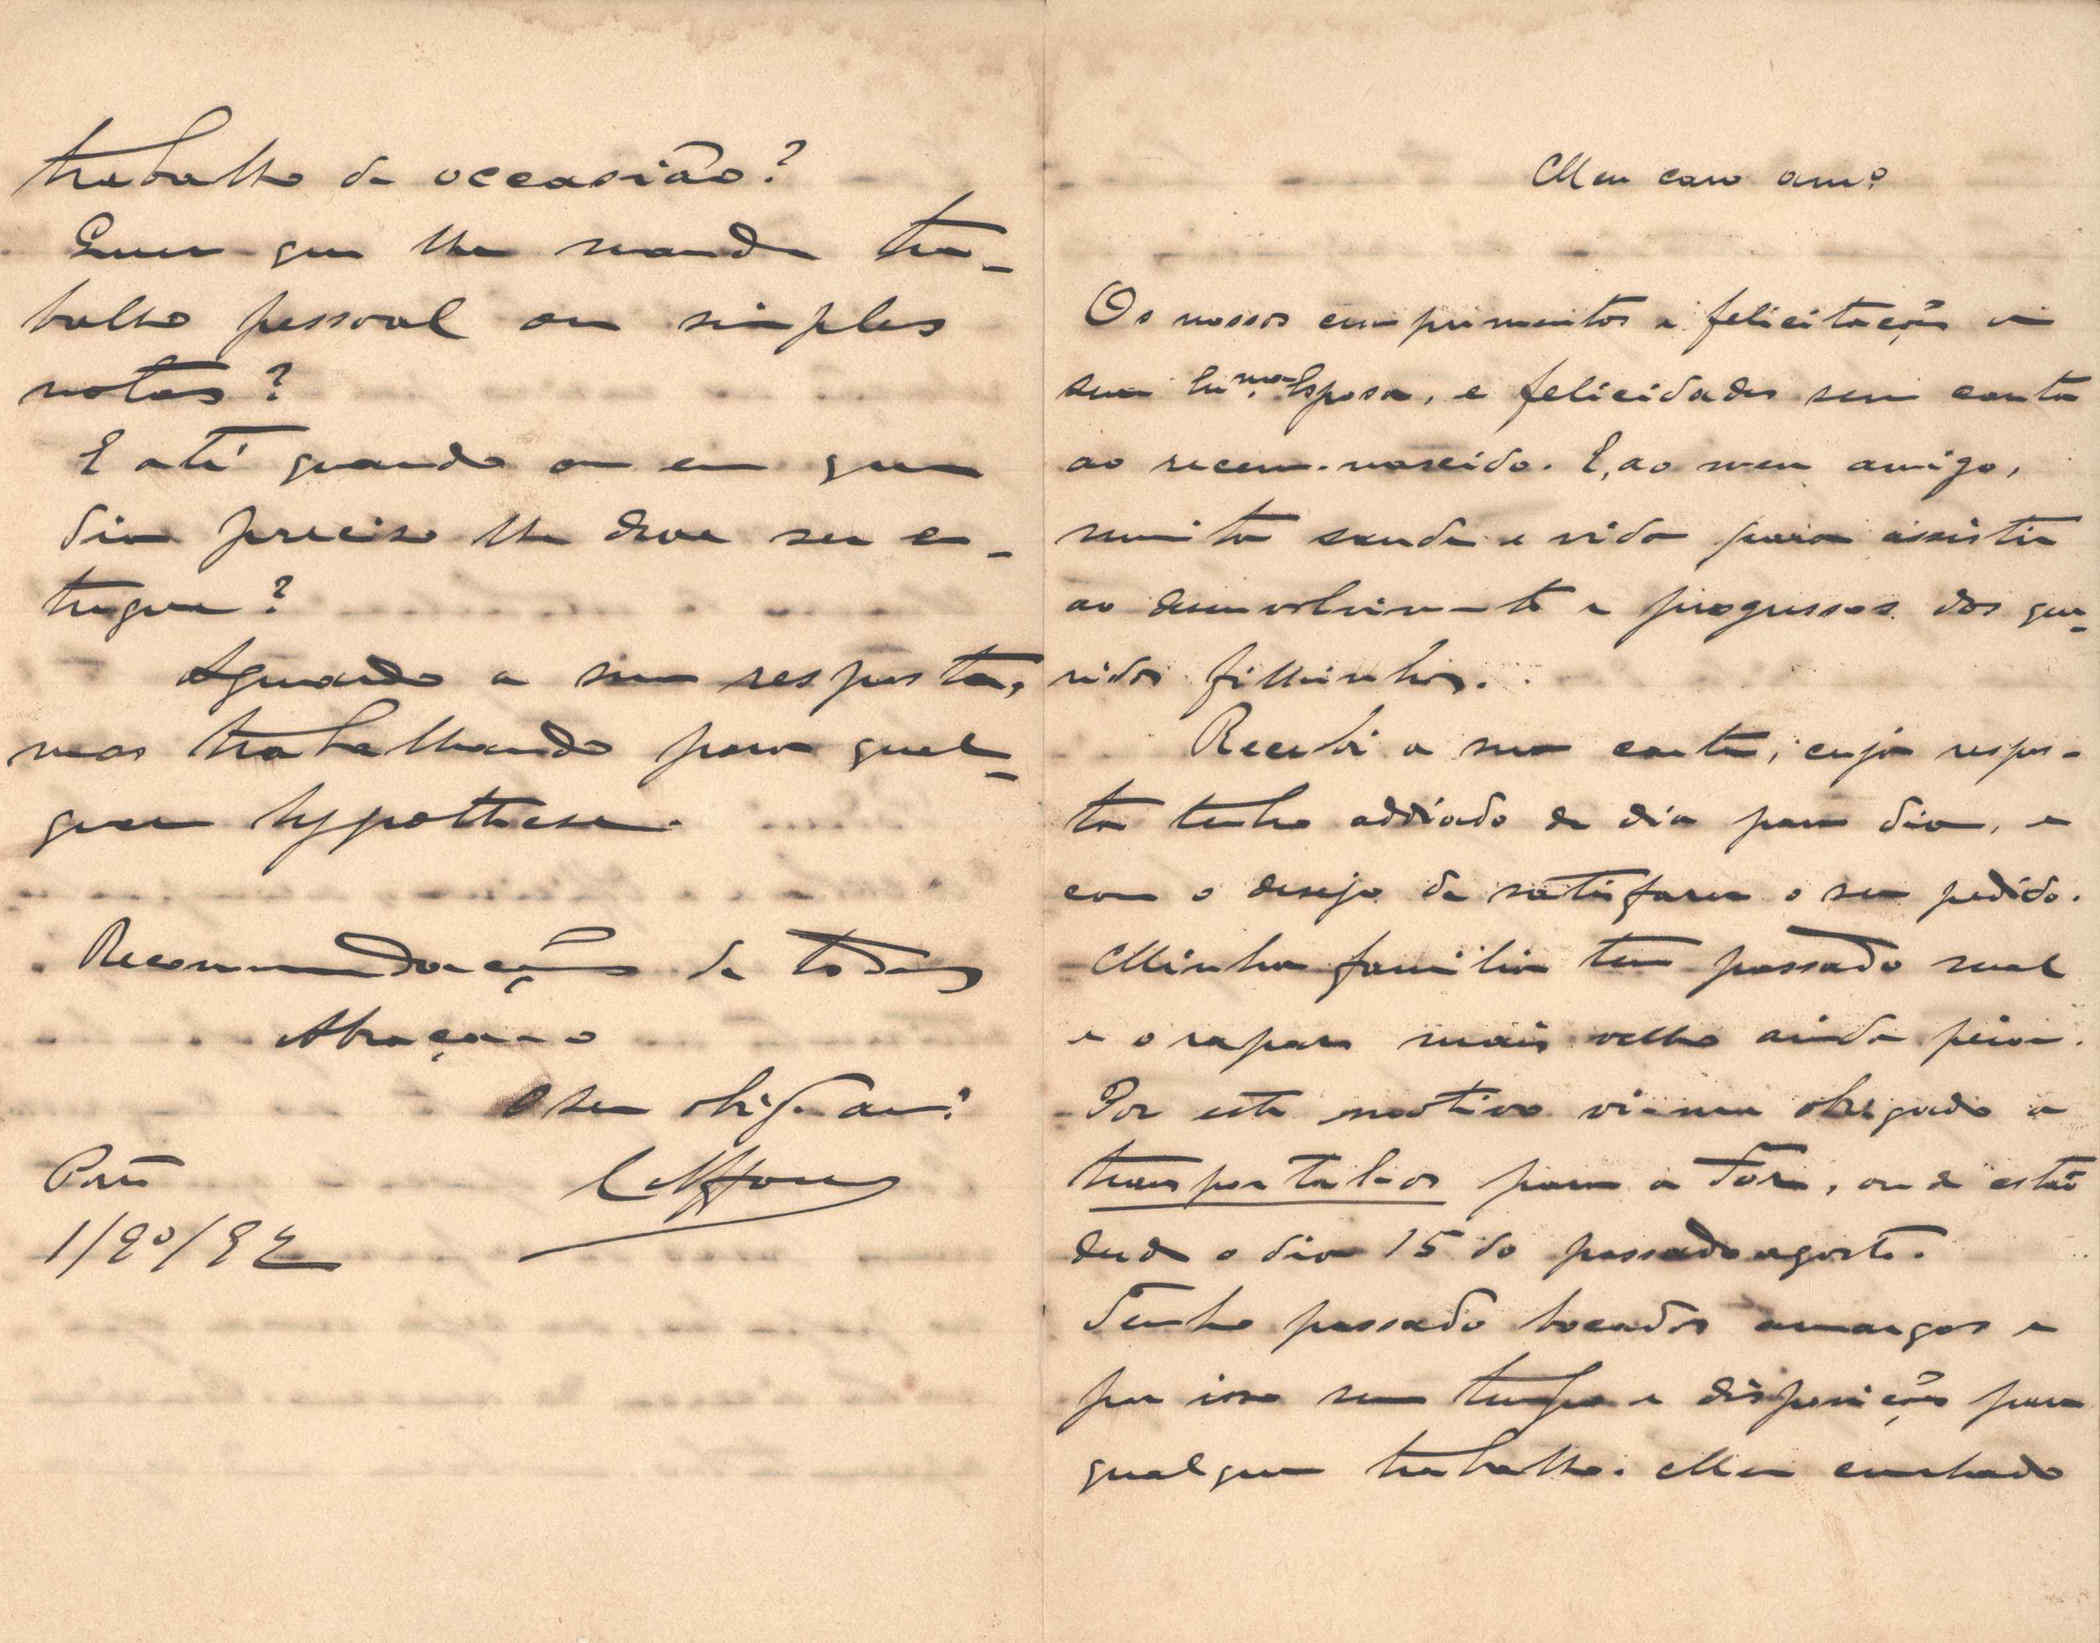 Meu caro am.º
Os nossos cumprimentos e felicitações a
sua Ex.ma Esposa, e felicidades sem conta
ao recem-nascido. E, ao meu amigo,
muita saude e vida para assistir
ao desenvolvimento e progressos dos que-
ridos filhinhos.
Recebi a sua carta, cuja respos-
ta tenho addiado de dia para dia, e
com o desejo de satisfazer o seu pedido.
Minha familia tem passado mal
e o rapaz mais velho ainda peior.
Por este motivo vi-me obrigado a
transportal-os para a Foz, onde estão
desde o dia 15 do passado agosto.
Tenho passado bocados amargos e
por isso sem tempo e disposição para
qualquer trabalho. Meu cunhado
trabalho de occasião?
Quer que lhe mande tra-
balho pessoal ou simples
notas?
E até quando ou em que
dia preciso lhe deve ser en-
tregue?
Aguardo a sua resposta,
mas trabalhando para qual-
quer hypothese.
Recommendações de todos
Abraça-o
O seu obrig. am.º
Porto